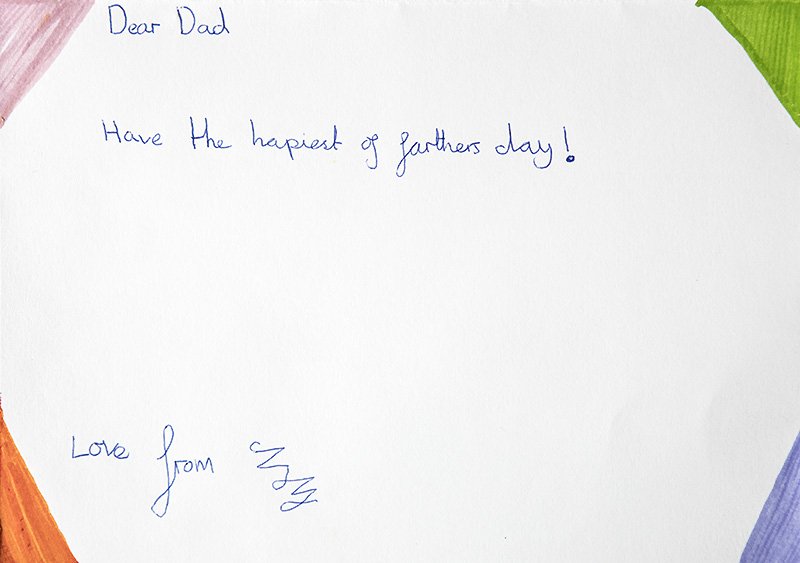 Dear Dad
Have the hapiest of farthers day!
Love from